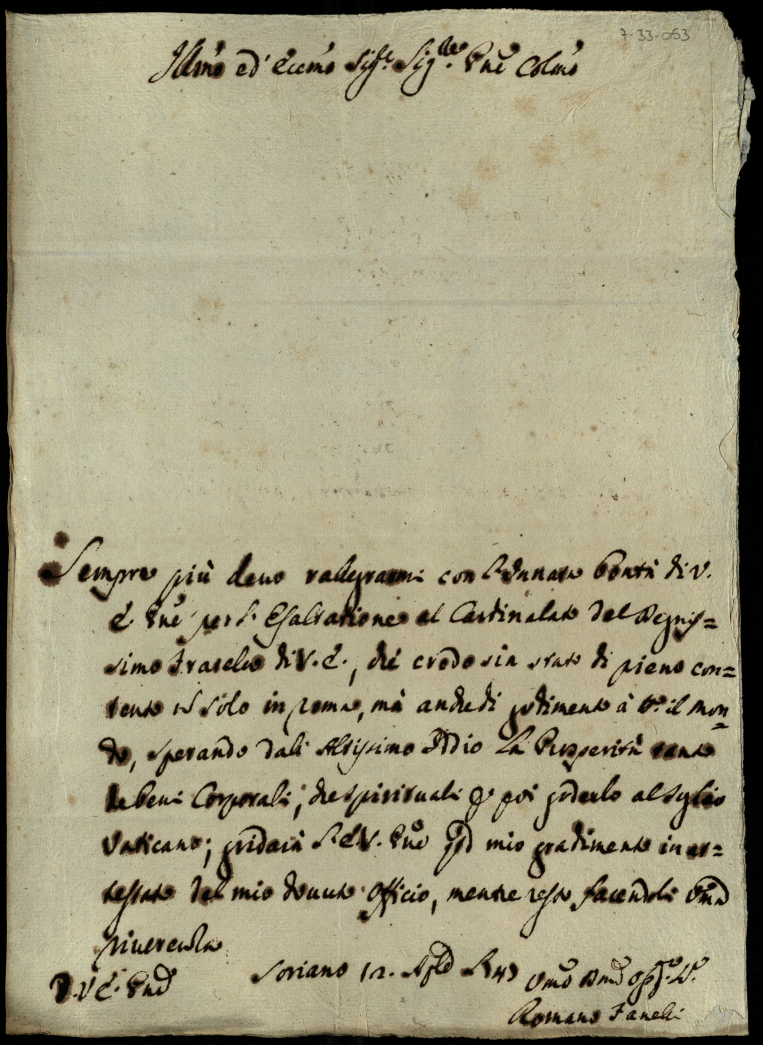 7-33-053
Illmo ed Eccmo Sigre Sigre Pne Colmo
Sempre più devo rallegrarmi con l'innata bontà di V.
E. Pne per l'Esaltatione al Cardinalato del Degnis=
simo Fratello di V. E., che credo sia stato di pieno con=
tento nō solo in Roma, mà anche di godimento à tto il mon=
do, sperando dall'Altissimo Iddio la Prosperità tanto
de beni Corporali, che spirituali per poi goderlo al soglio
Vaticano; gridarà l'E. V. Pne qto mio gradimento in at=
testato del mio dovuto Officio, mentre resto facendoli
riverenza
D. V. E. Pne
Soriano 12. 1743
Umo Dmo Oss. Se.
Romano Fanelli